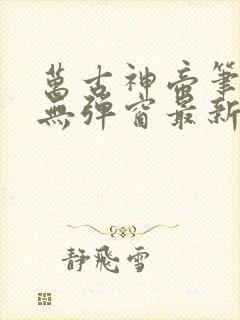 萬古神帝筆
無彈窗最新
靜飛雪